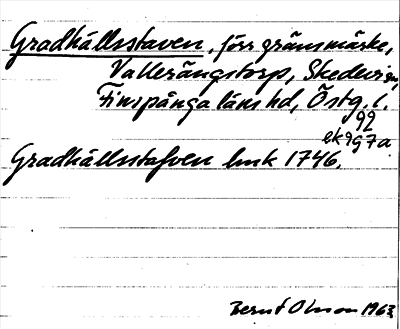 Gradhällsstaven, förr gränsmärke,
Vallerängstorp, Skedevi sn,
Finspånga läns hd, Östg. l.
99
ek 9G7a
Gradhällsstafven lmk 1746.
Bernt Olsson 1963